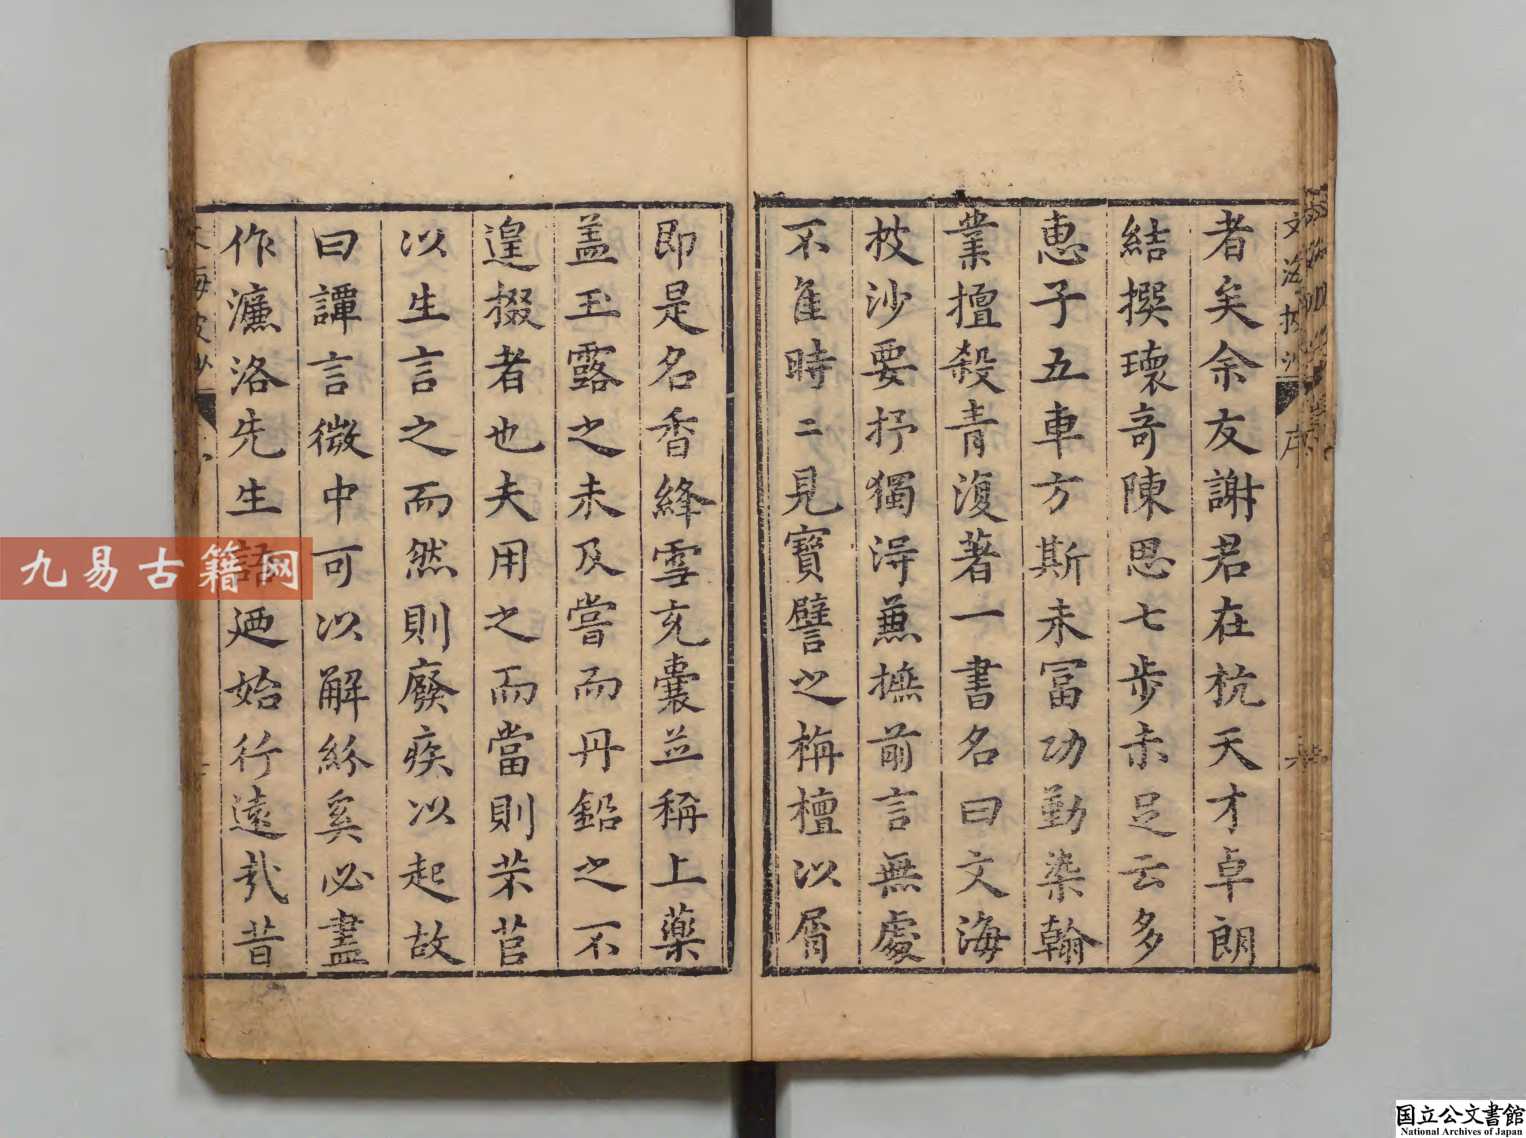 者矣余友謝君在杭天才卓朗
結撰瓌奇陳思七步未足云多
惠子五車方斯未冨功勤染翰
業擅殺青復著一書名曰文海
披沙要抒獨淂蕪撫前言無處
不隹時二見寳譬之栴檀以屑
即是名香絳雪充囊並稱上藥
盖玉露之未及嘗而丹鉛之不
遑掇者也夫用之而當則芣苢
以生言之而然則癈疾以起故
曰譚言微中可以解紛奚必盡
作濂洛先生語廼始行遠㢤昔
文海披沙 序
九易古籍网
国立公文書館
National Archives of Japan